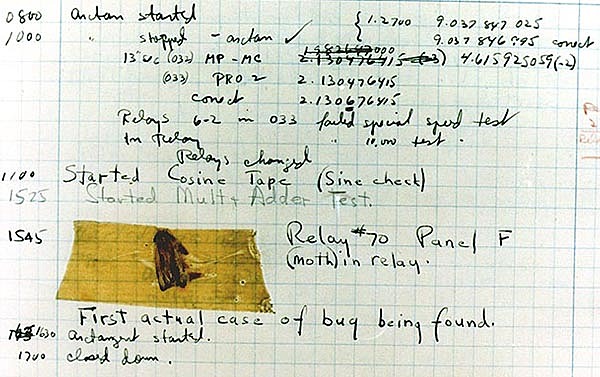 0800 arctan started { 1.2700 9.037 847 025
1000 " stopped - arctan ✓ 9.037 846 995 conect
13"uc (032) MP - MC 2.130476415 (-3) 4.615925059(-2)
(033) PRO 2 2.130476415
conect 2.130676415
Relays 6-2 in 033 failed special speed test
In Relay " 10,000 test .
Relays changed
1100 Started Cosine Tape (Sine check)
1525 Started Mult+ Adder Test.
1545 Relay #70 Panel F
(moth) in relay.
First actual case of bug being found.
1630 arctangent started.
1700 closed down.